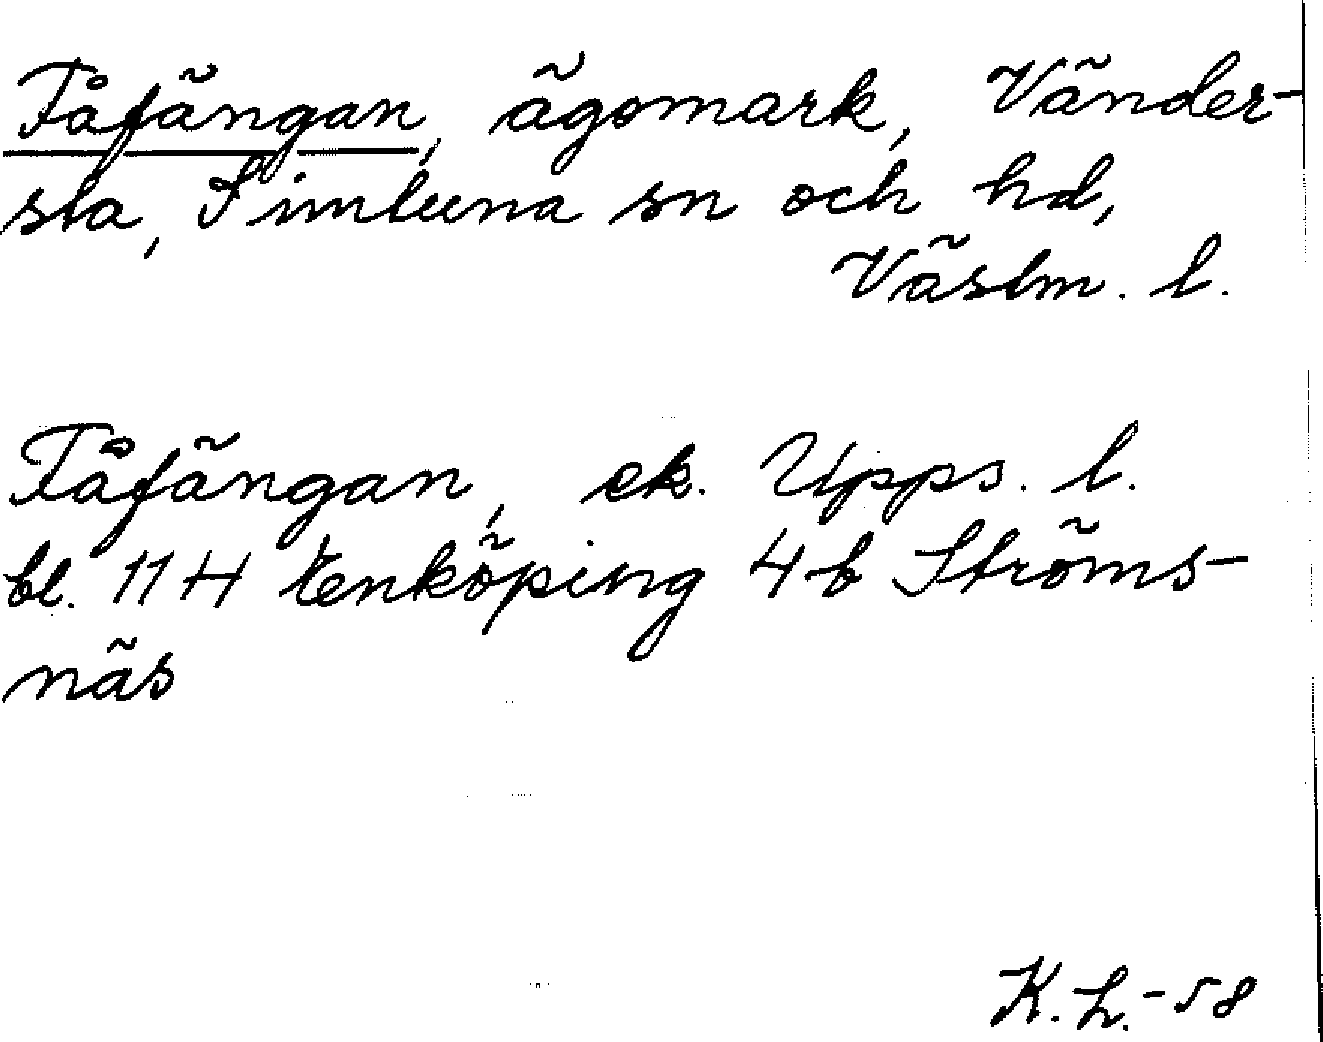 Fåfängan, ägomark, Vänder-
sta, Simtuna sn och hd,
Västm. l.
Fåfängan, ek. Upps. l.
bl. 11 H Enköping 4 b Ströms-
näs
K. L. -58